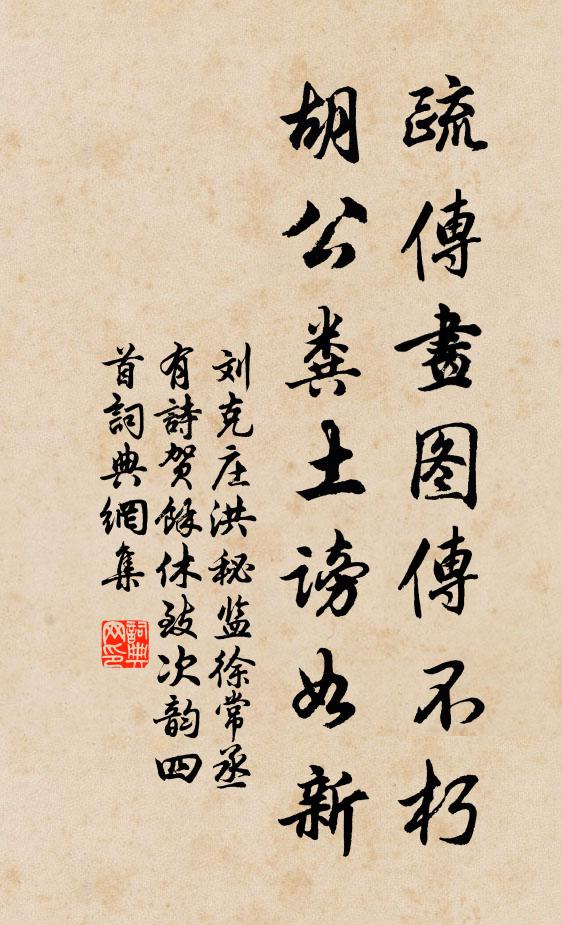 疏傳畫图傳不朽
胡公粪土謗如新
刘克庄洪秘监徐常丞
有詩贺餘休致次韵四
首詞典網集
詞典网印